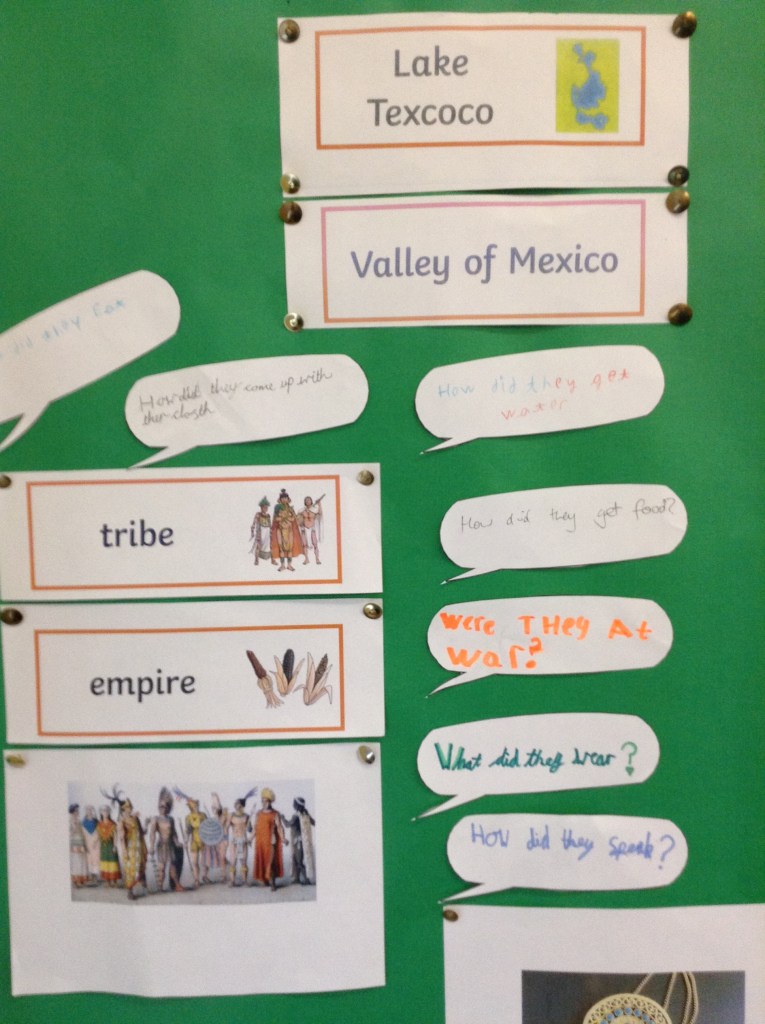 Lake
Texcoco
Valley of Mexico
did they Eat
How did they come up with
ther closth
How did they get
water
tribe
How did they get food?
empire
were THey At
war?
What did they wear?
How did they speak?